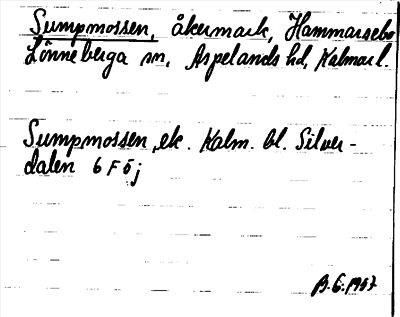 Sumpmossen, åkermark, Hammarsebo
Lönneberga sn, Aspelands hd, Kalmar l.
Sumpmossen, ek. Kalm. bl. Silver-
dalen 6 F 5 j
B.G. 1957